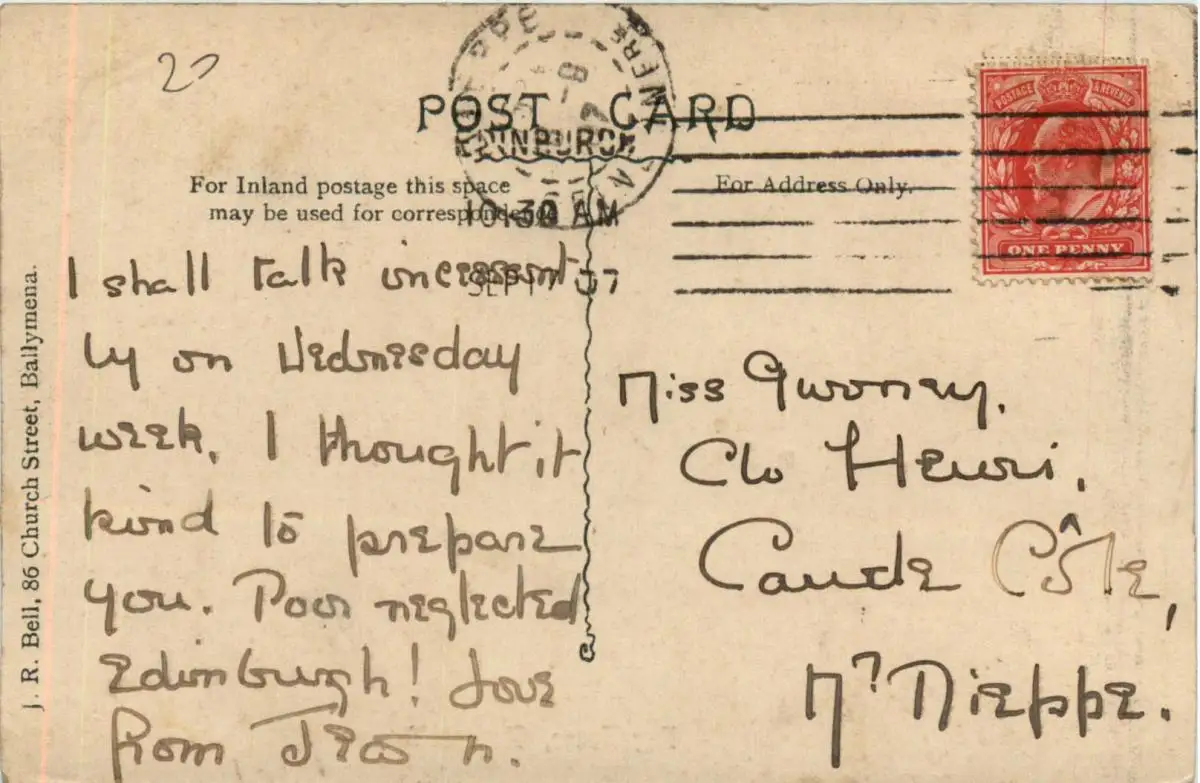 20
POST CARD
For Inland postage this space
may be used for correspondence
For Address Only.
EDINBURGH
10.30 AM
SEPT 7 07
POSTAGE & REVENUE
ONE PENNY
DIEPPE
I shall talk incessant
ly on Wednesday
week. I thought it
kind to prepare
you. Poor neglected
Edinburgh! Love
from Jean.
Miss
C/o Henri,
Caude Côte,
Nr Dieppe.
J. R. Bell, 86 Church Street, Ballymena.